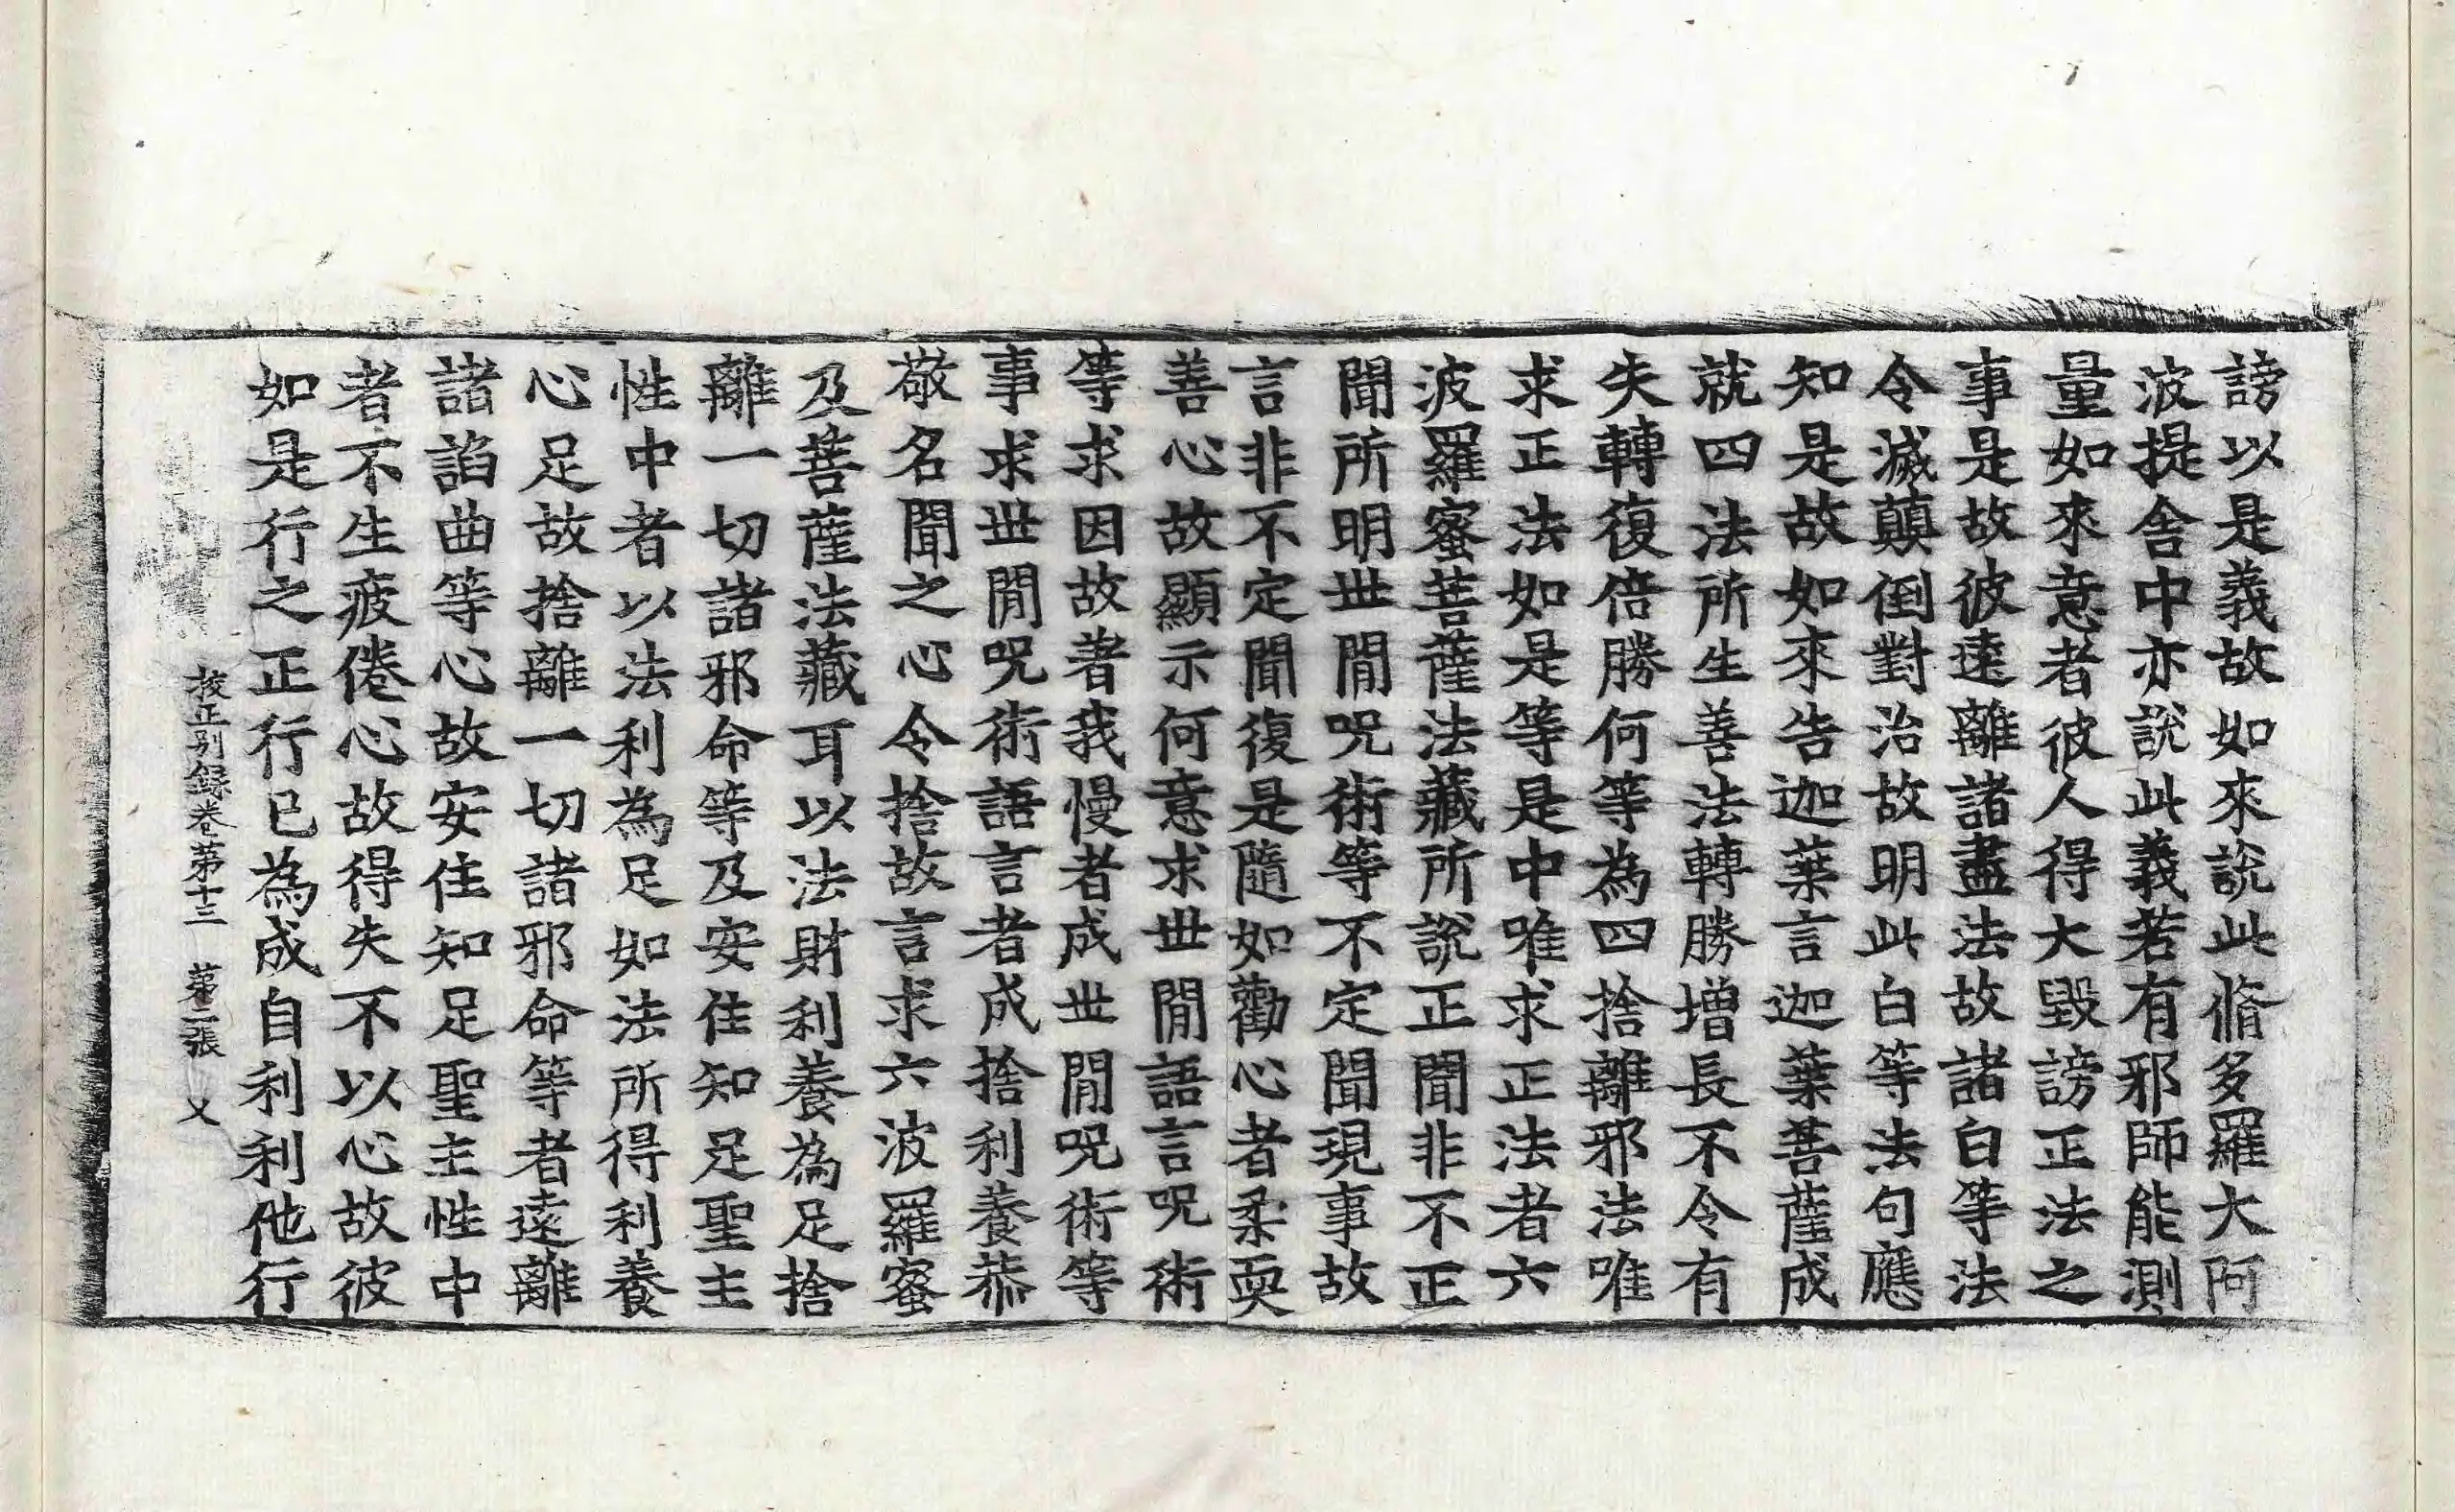 謗以是義故如來說此脩多羅大阿
波提舍中亦說此義若有邪師能測
量如來意者彼人得大毀謗正法之
事是故彼遠離諸盡法故諸白等法
令滅顛倒對治故明此白等法句應
知是故如來告迦葉言迦葉菩薩成
就四法所生善法轉勝增長不令有
失轉復倍勝何等為四捨離邪法唯
求正法如是等是中唯求正法者六
波羅蜜菩薩法藏所說正聞非不正
聞所明世閒呪術等不定聞現事故
言非不定聞復是隨如勸心者柔耎
善心故顯示何意求世閒語言呪術
等求因故著我慢者成世閒呪術等
事求世閒呪術語言者成捨利養恭
敬名聞之心令捨故言求六波羅蜜
及菩薩法藏耳以法財利養為足捨
離一切諸邪命等及安住知足聖主
性中者以法利為足如法所得利養
心足故捨離一切諸邪命等者遠離
諸諂曲等心故安住知足聖主性中
者不生疲倦心故得失不以心故彼
如是行之正行已為成自利利他行
挍正別錄卷第十三　第二張　乂